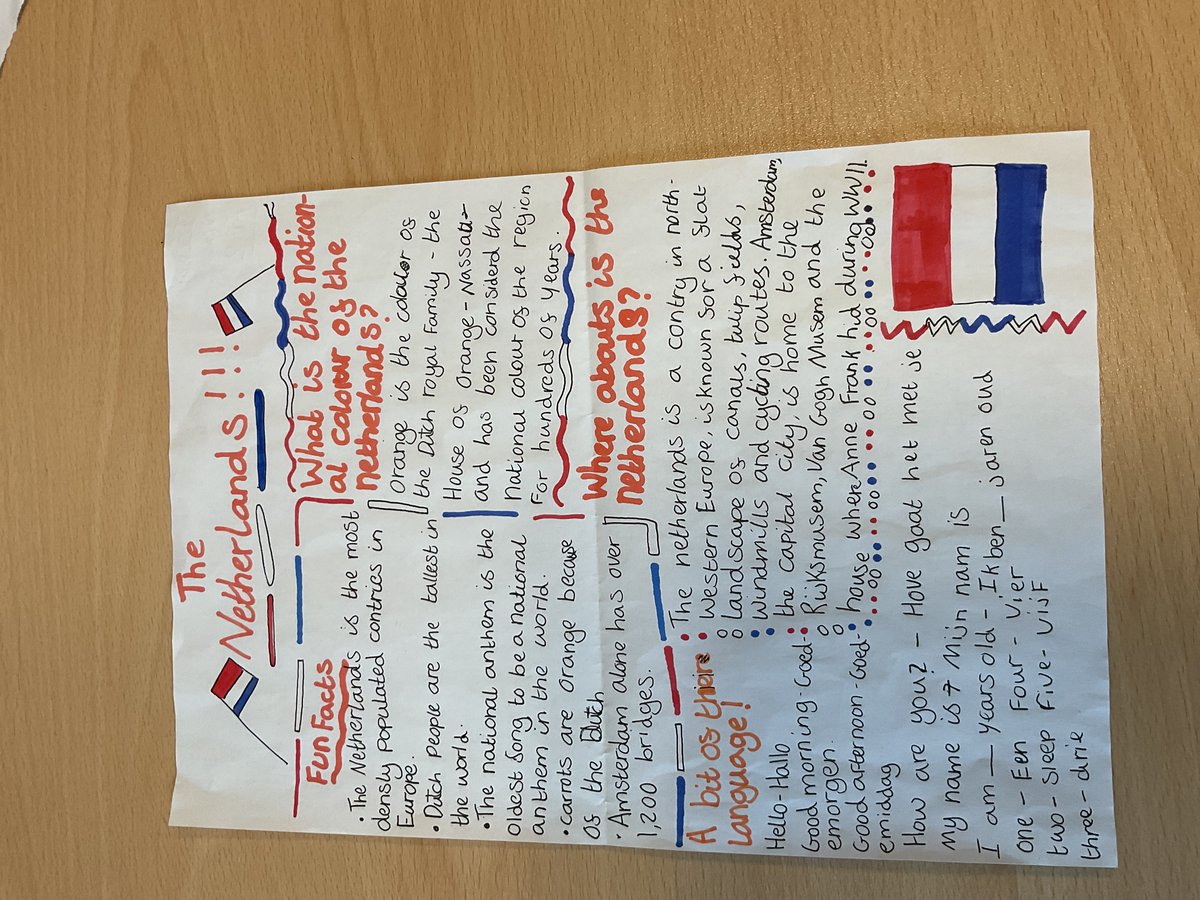 The
Netherlands!!!
Fun Facts
• The Netherlands is the most
densly populated contries in
Europe.
• Dutch People are the tallest in
the world.
• The national anthem is the
oldest song to be a national
anthem in the world.
• carrots are orange because
of the Dutch
• Amsterdam alone has over
1,200 bridges.
What is the nation-
al colour of the
netherlands?
Orange is the colour of
the Dutch royal family - the
House of Orange-Nassau-
and has been considerd the
National colour of the region
For hundreds of years.
Where abouts is the
netherlands?
The netherlands is a contry in north-
Western Europe, is known for a flat
landscape of canals, tulip fields,
Windmills and cycling routes. Amsterdam,
the capital city, is home to the
Rijksmusem, Van Gogh Musem and the
house where Anne Frank hid during WWII.
A bit of their
language!
Hello - Hallo
Good morning - Goed-
emorgen.
Good afternoon - Goed-
emiddag
How are you? - Hove gaat het met je
My name is → Mijn nam is
I am __ years old - Ik ben __ jaren oud
One - Een Four - Vier
two - sleep Five - Vijf
three - drie